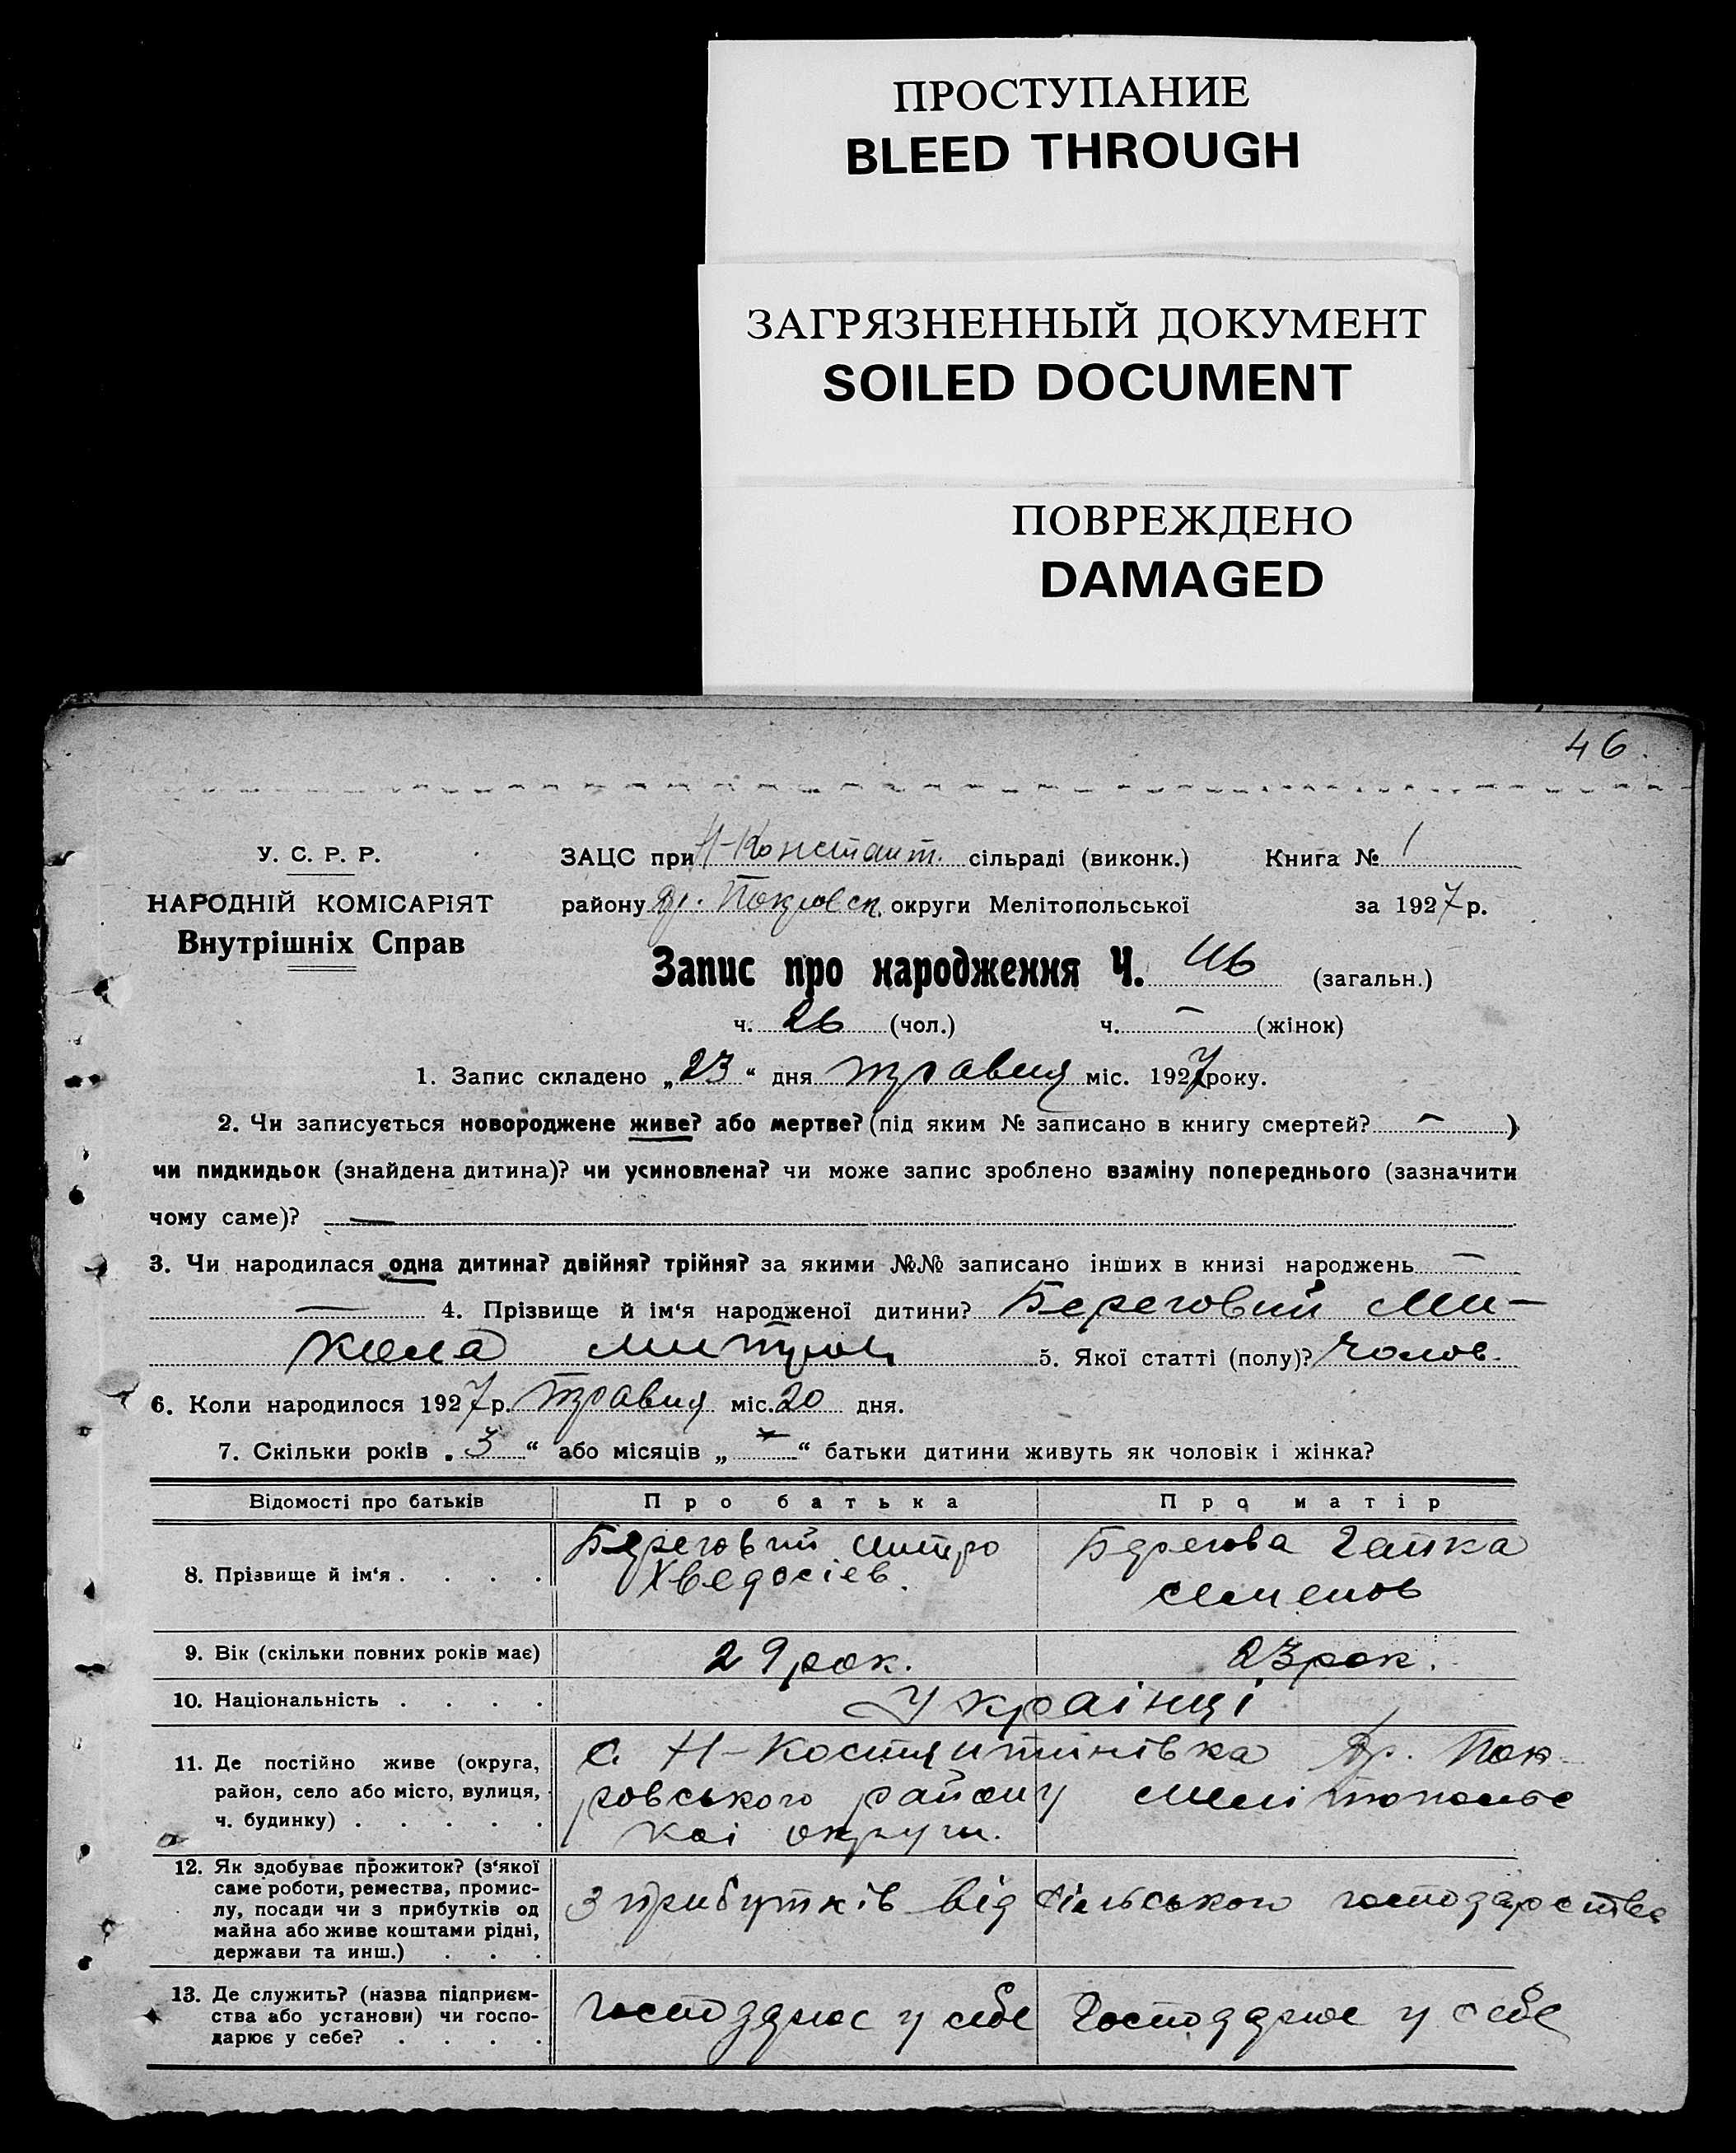 ПРОСТУПАНИЕ
BLEED THROUGH
ЗАГРЯЗНЕННЫЙ ДОКУМЕНТ
SOILED DOCUMENT
ПОВРЕЖДЕНО
DAMAGED
46.
У. С. Р. Р.
НАРОДНІЙ КОМІСАРІЯТ
Внутрішніх Справ
ЗАЦС при Н-Констант. сільраді (виконк.) Книга № 1
району Вр. Покровск. округи Мелітопольської за 1927 р.
Запис про народження Ч. 46 (загальн.)
ч. 26 (чол.) ч. – (жінок)
1. Запис складено „23“ дня травня міс. 1927 року.
2. Чи записується новороджене живе? або мертве? (під яким № записано в книгу смертей? – )
чи пидкидьок (знайдена дитина)? чи усиновлена? чи може запис зроблено взаміну попереднього (зазначити
чому саме)? —
3. Чи народилася одна дитина? двійня? трійня? за якими №№ записано інших в книзі народжень —
— 4. Прізвище й ім‘я народженої дитини? Береговий Ми-
кола Митров 5. Якої статті (полу)? Чолов.
6. Коли народилося 1927 р. травня міс. 20 дня.
7. Скільки років „3“ або місяців „–“ батьки дитини живуть як чоловік і жінка?
Відомості про батьків Про батька Про матір
8. Прізвище й ім‘я . . . . Береговий Митро Берегова Гапка
Хведосіев. Семенов
9. Вік (скільки повних років має) 29 рок. 23 рок.
10. Національність . . . . Українці
11. Де постійно живе (округа, С. Н-Костянтинівка Вр. Пок-
район, село або місто, вулиця, ровського району Мелітопольс
ч. будинку) . . . . . коі округи.
12. Як здобуває прожиток? (з‘якої
саме роботи, ремества, промис-
лу, посади чи з прибутків од з прибутків від сільського господарства
майна або живе коштами рідні,
держави та инш.) . . .
13. Де служить? (назва підприєм-
ства або установи) чи госпо- Господарює у себе Господарює у себе
дарює у себе? . . . .